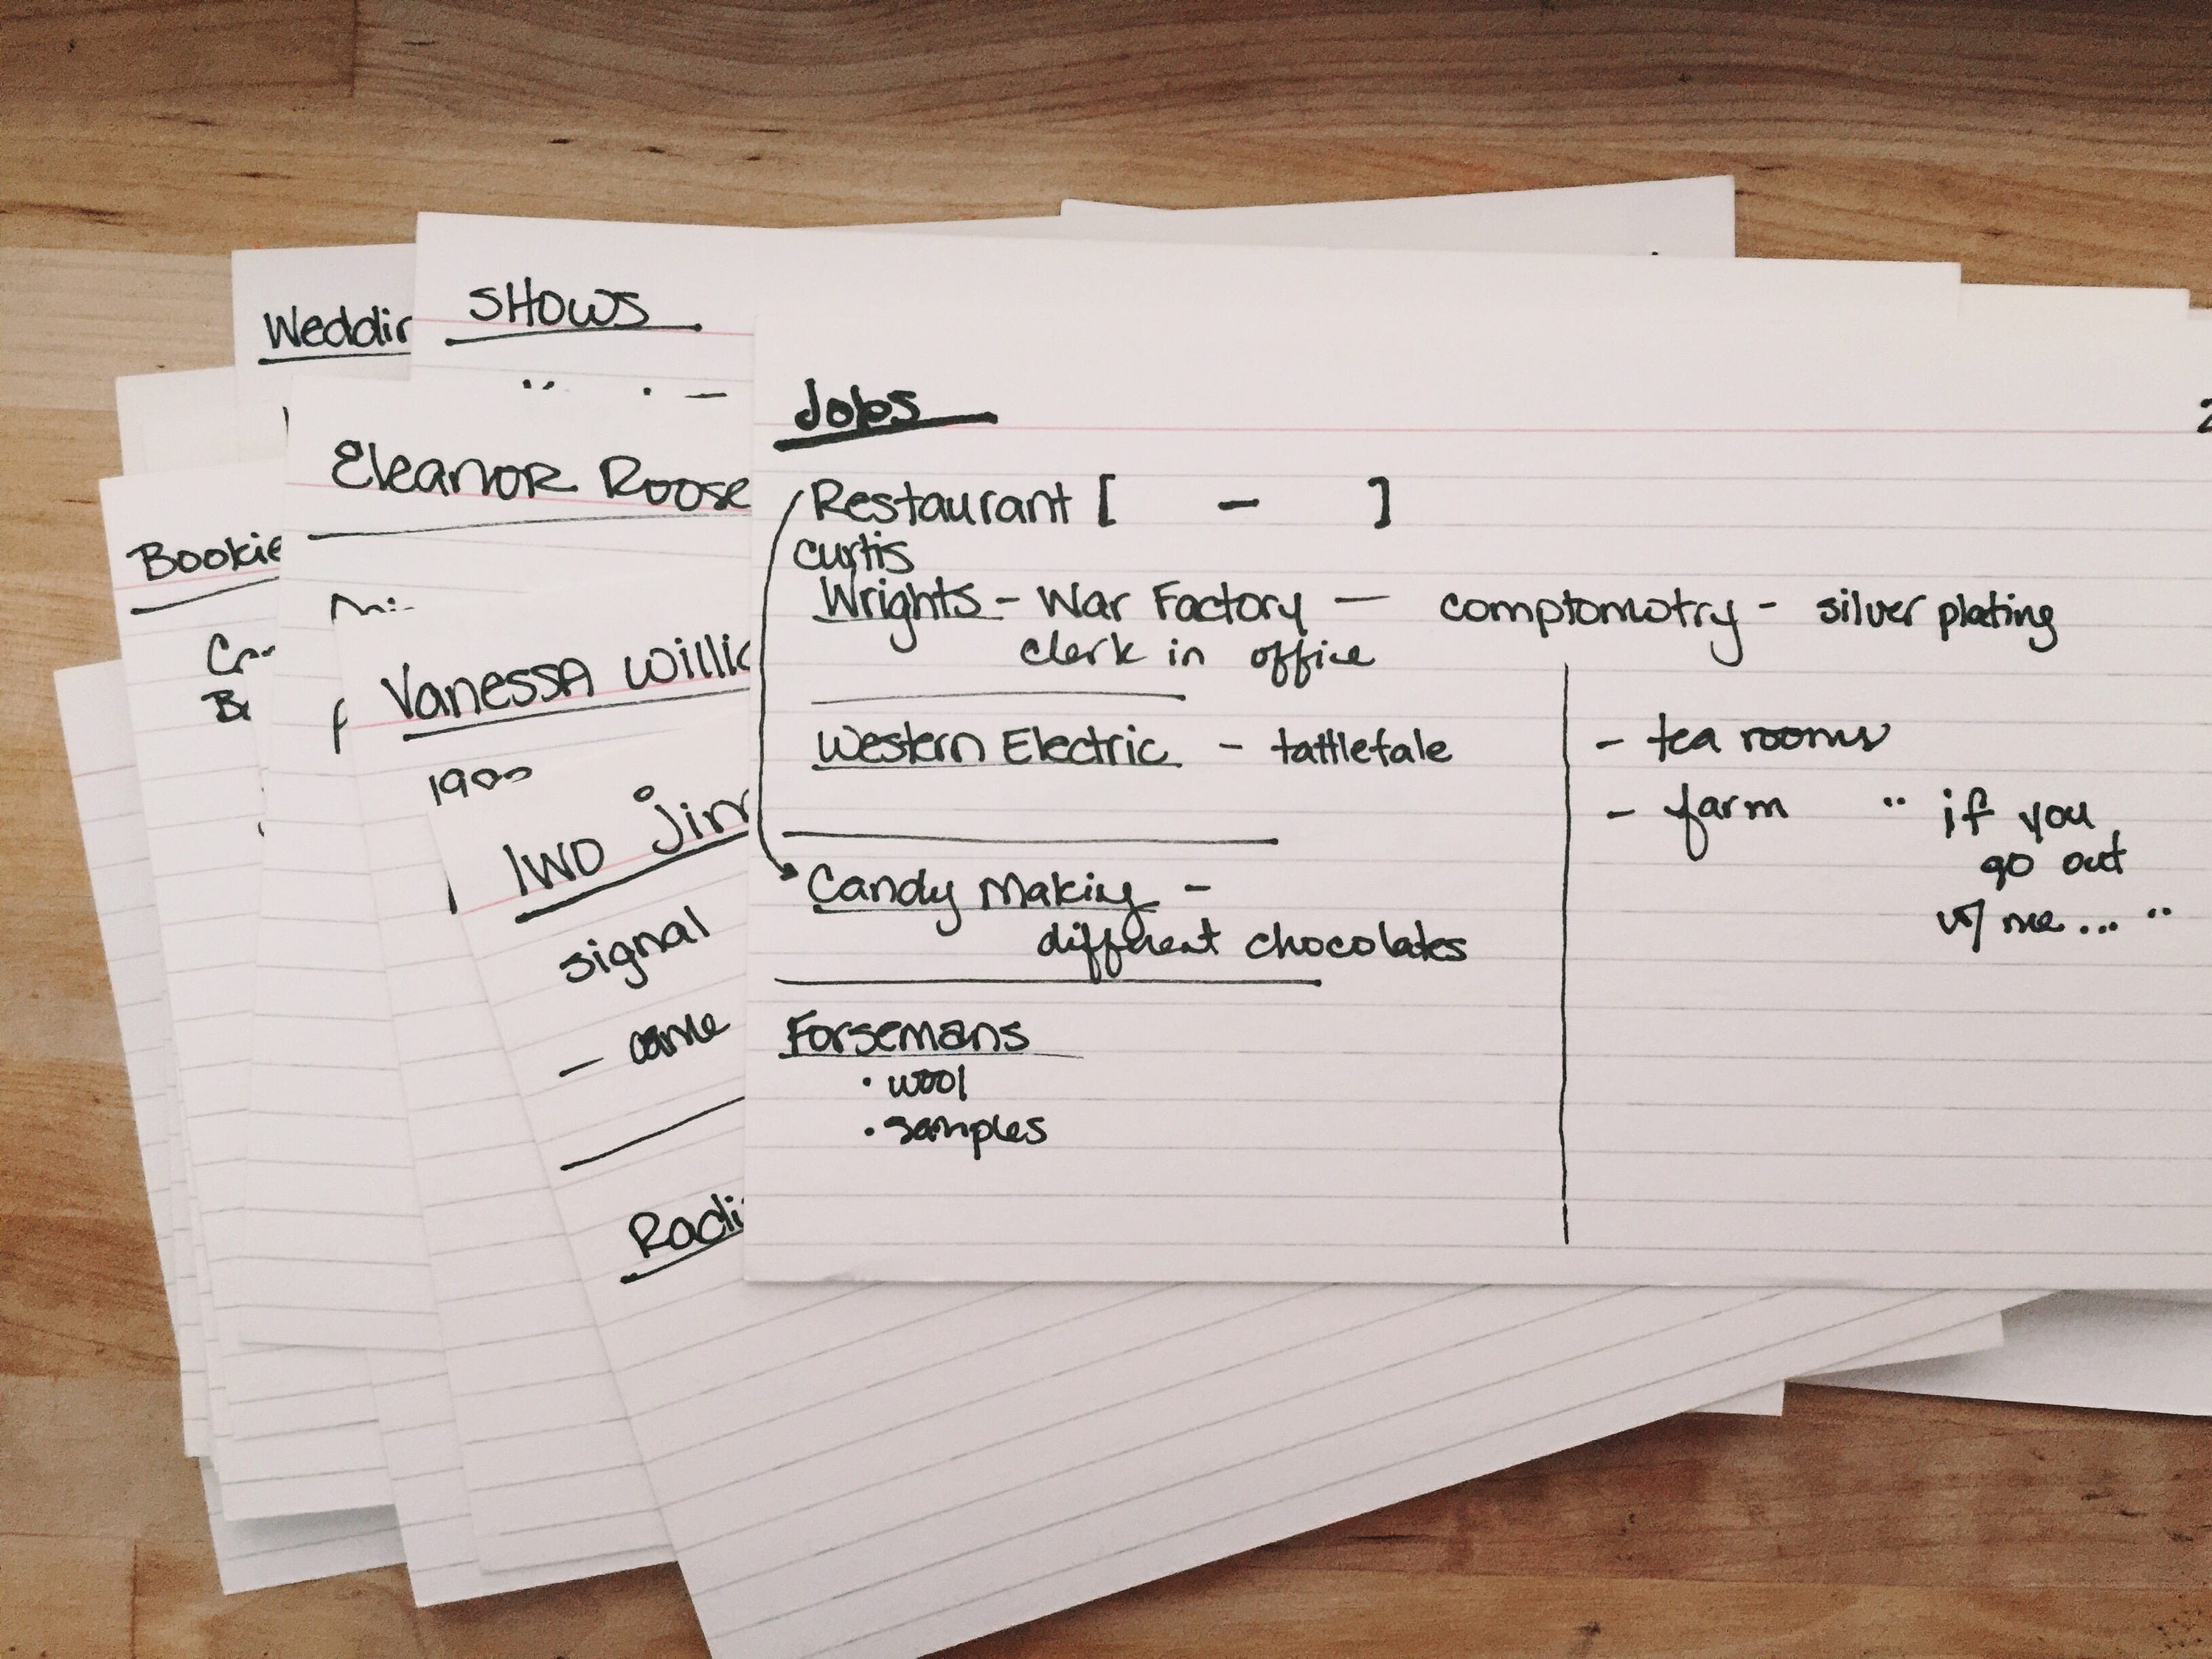 Weddin
SHOWS
Eleanor Roose
Bookie
Vanessa Willi
1900
Iwo Jim
signal
- came
Radi
Jobs
2
Restaurant [ - ]
curtis
Wrights - War Factory - comptomotry - silver plating
clerk in office
Western Electric - tattletale
Candy Making -
different chocolates
Forsemans
• wool
• samples
- tea rooms
- farm " if you
go out
w/ me... "